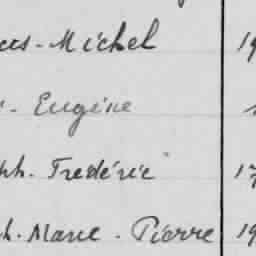 Michel 19
Eugène
ph. Frédéric 17
h. Marie - Pierre 19